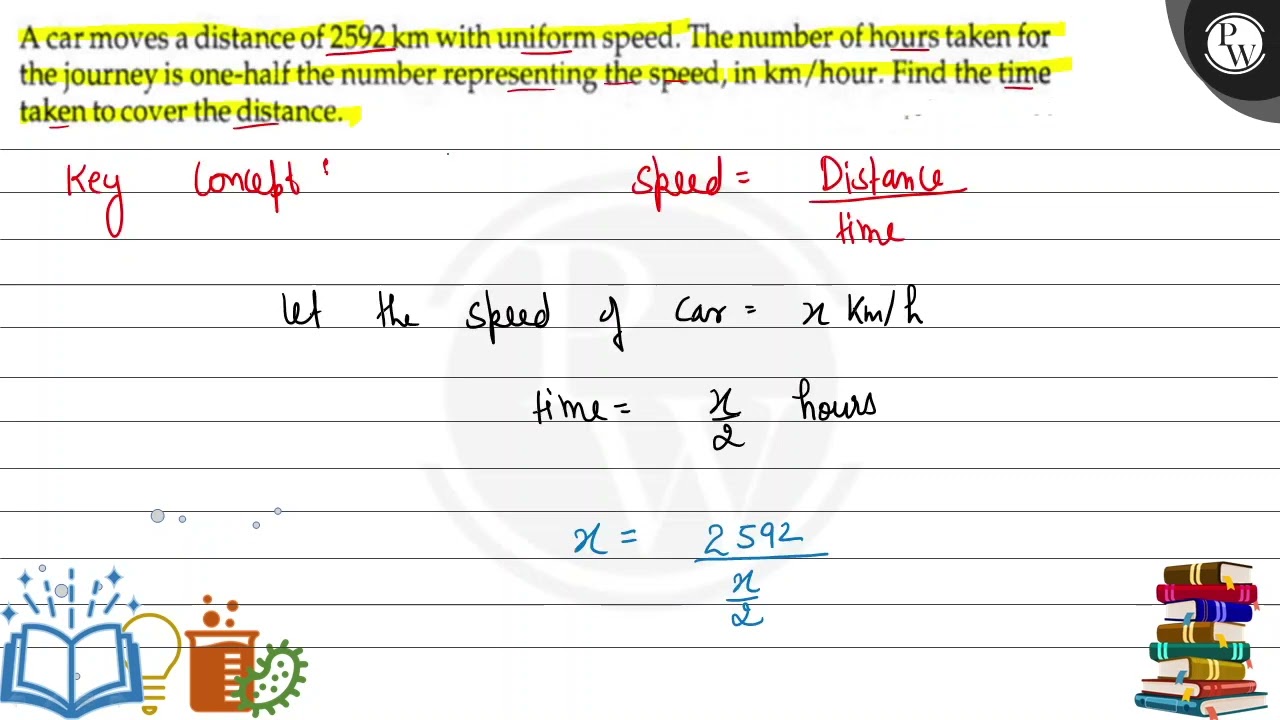 A car moves a distance of 2592 km with uniform speed. The number of hours taken for
the journey is one-half the number representing the speed, in km/hour. Find the time
taken to cover the distance.
PW
Key Concept : speed = Distance / time
let the speed of car = x Km/h
time = x/2 hours
x = 2592 / x/2